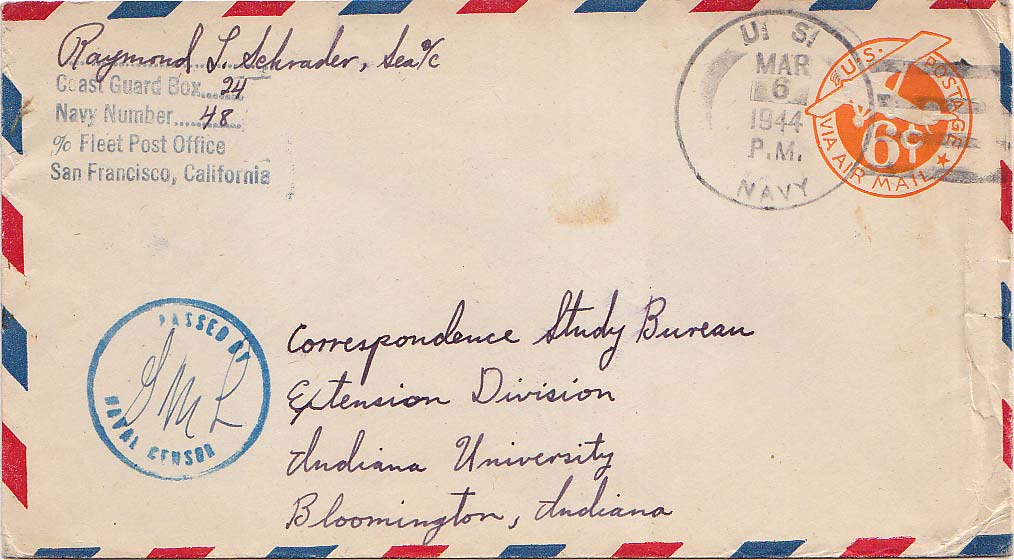 Raymond L. Schrader, Sea 2/c
Coast Guard Box....24
Navy Number....48
c/o Fleet Post Office
San Francisco, California
U. S.
MAR
6
1944
P.M.
NAVY
U.S. POSTAGE
6¢
VIA AIR MAIL
PASSED BY
NAVAL CENSOR
Correspondence Study Bureau
Extension Division
Indiana University
Bloomington, Indiana